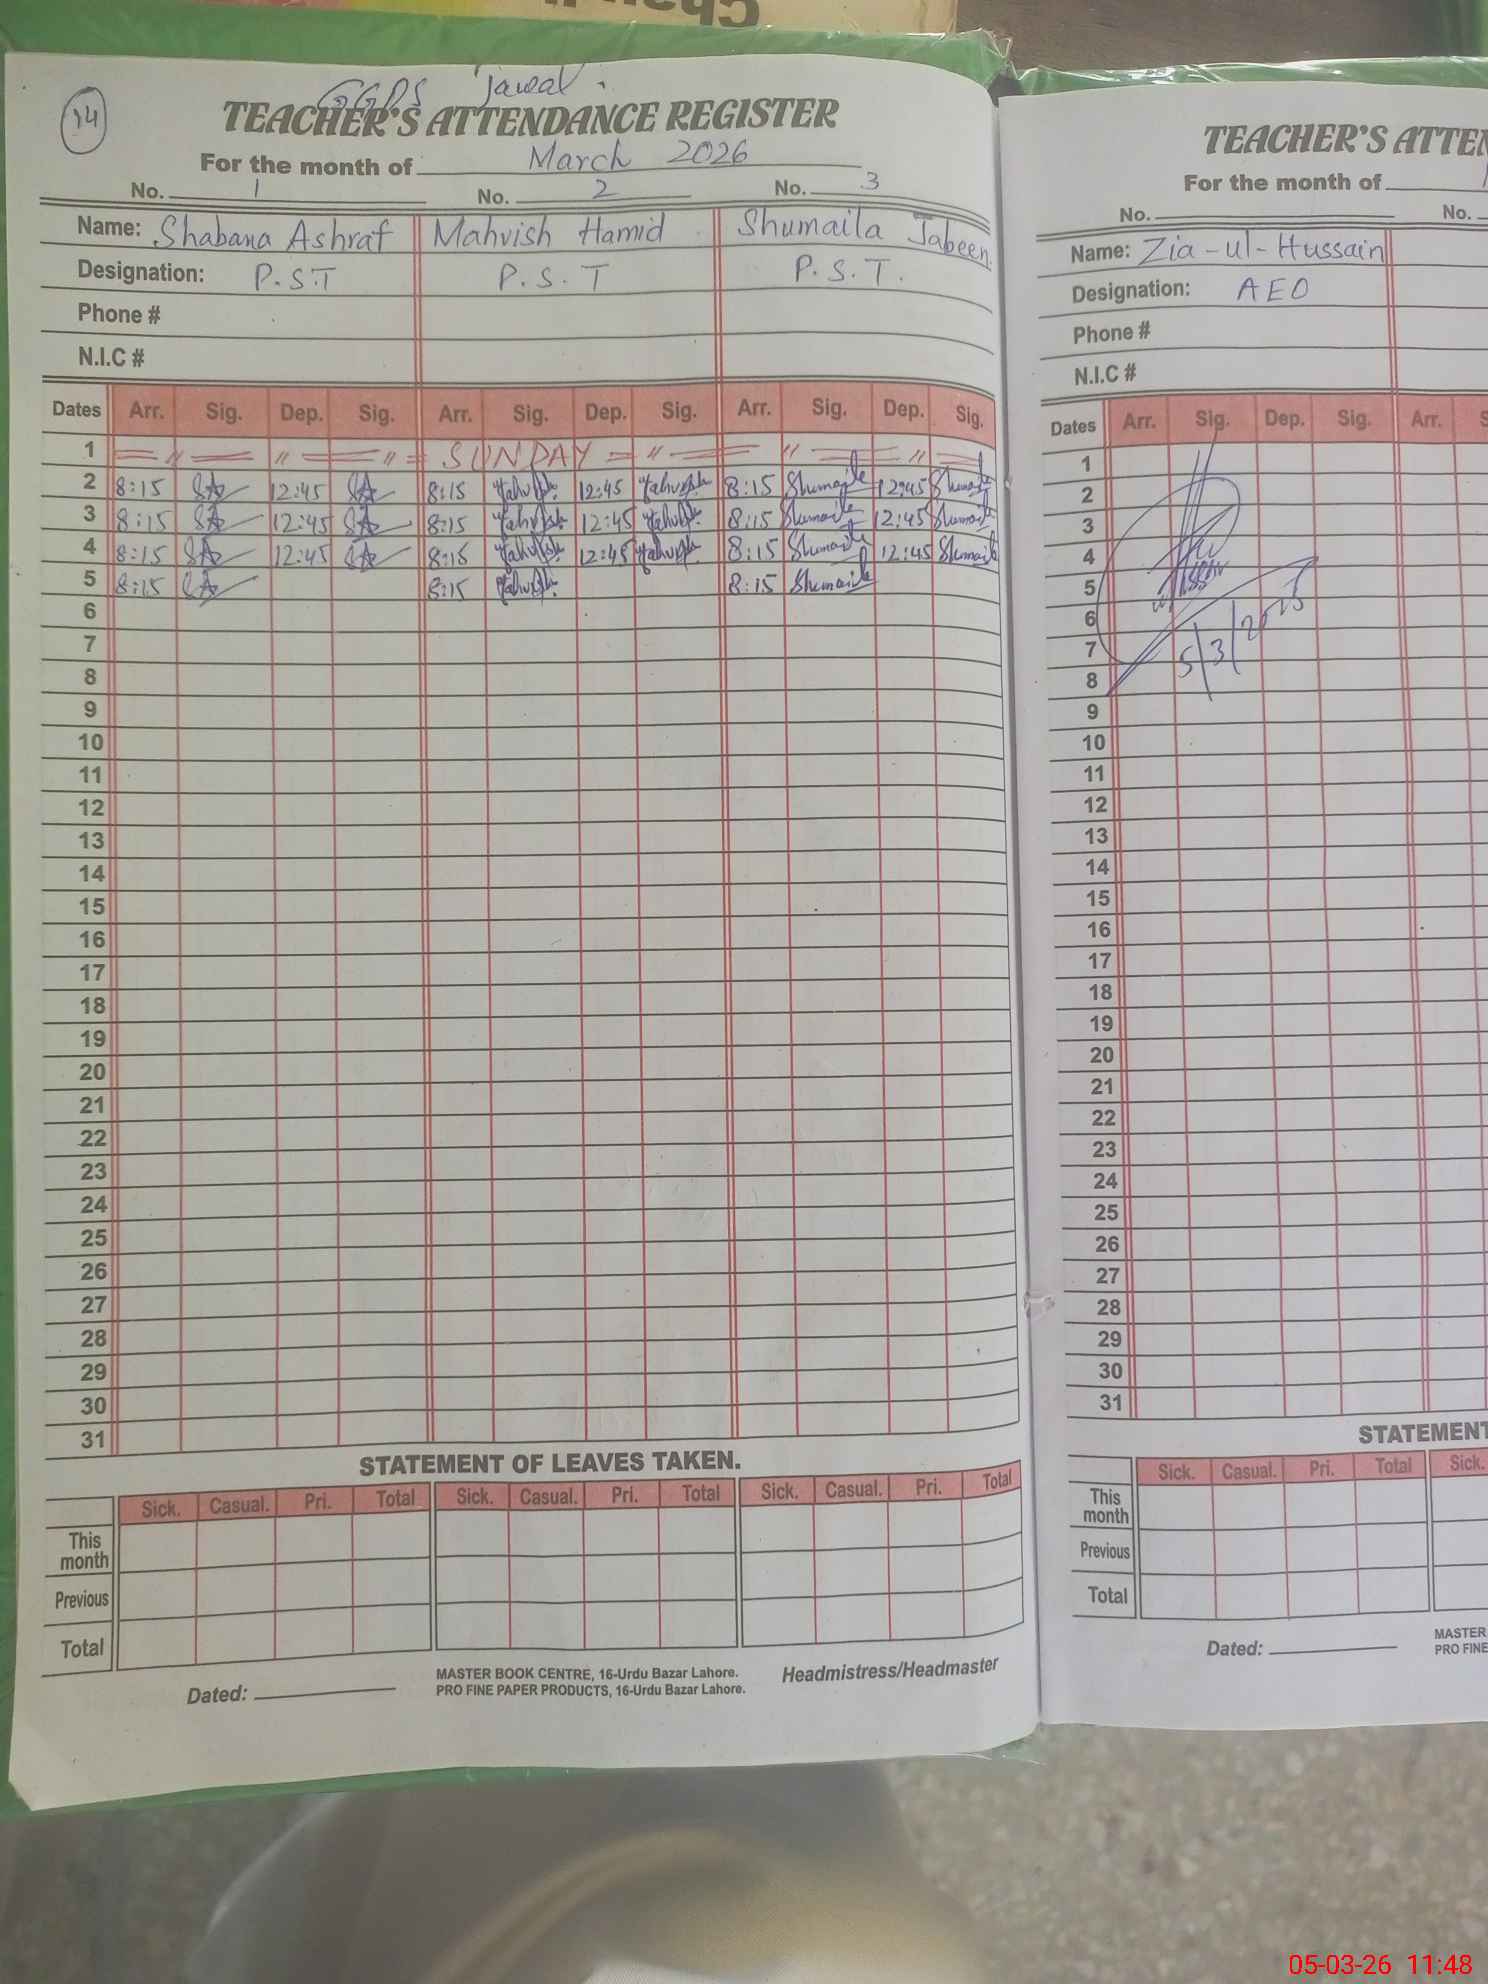 14
GGPS Jawal
TEACHER'S ATTENDANCE REGISTER
For the month of March 2026
No. 1 No. 2 No. 3
Name: Shabana Ashraf Mahvish Hamid Shumaila Jabeen
Designation: P.S.T P.S.T P.S.T.
Phone #
N.I.C #
Dates Arr. Sig. Dep. Sig. Arr. Sig. Dep. Sig. Arr. Sig. Dep. Sig.
1 = " = " = " = SUNDAY = " = " = " =
2 8:15 SA 12:45 SA 8:15 12:45 8:15 Shumaila 12:45 Shumaila
3 8:15 SA 12:45 SA 8:15 12:45 8:15 Shumaila 12:45 Shumaila
4 8:15 SA 12:45 SA 8:15 12:45 8:15 Shumaila 12:45 Shumaila
5 8:15 SA 8:15 8:15 Shumaila
6
7
8
9
10
11
12
13
14
15
16
17
18
19
20
21
22
23
24
25
26
27
28
29
30
31
STATEMENT OF LEAVES TAKEN.
Sick. Casual. Pri. Total Sick. Casual. Pri. Total Sick. Casual. Pri. Total
This month
Previous
Total
Dated:
MASTER BOOK CENTRE, 16-Urdu Bazar Lahore.
PRO FINE PAPER PRODUCTS, 16-Urdu Bazar Lahore.
Headmistress/Headmaster
TEACHER'S ATTEN
For the month of
No. No.
Name: Zia-ul-Hussain
Designation: AEO
Phone #
N.I.C #
Dates Arr. Sig. Dep. Sig. Arr. S
1
2
3
4
5
6
7
5/3/2025
8
9
10
11
12
13
14
15
16
17
18
19
20
21
22
23
24
25
26
27
28
29
30
31
STATEMENT
Sick. Casual. Pri. Total Sick.
This month
Previous
Total
Dated:
MASTER
PRO FINE
05-03-26 11:48